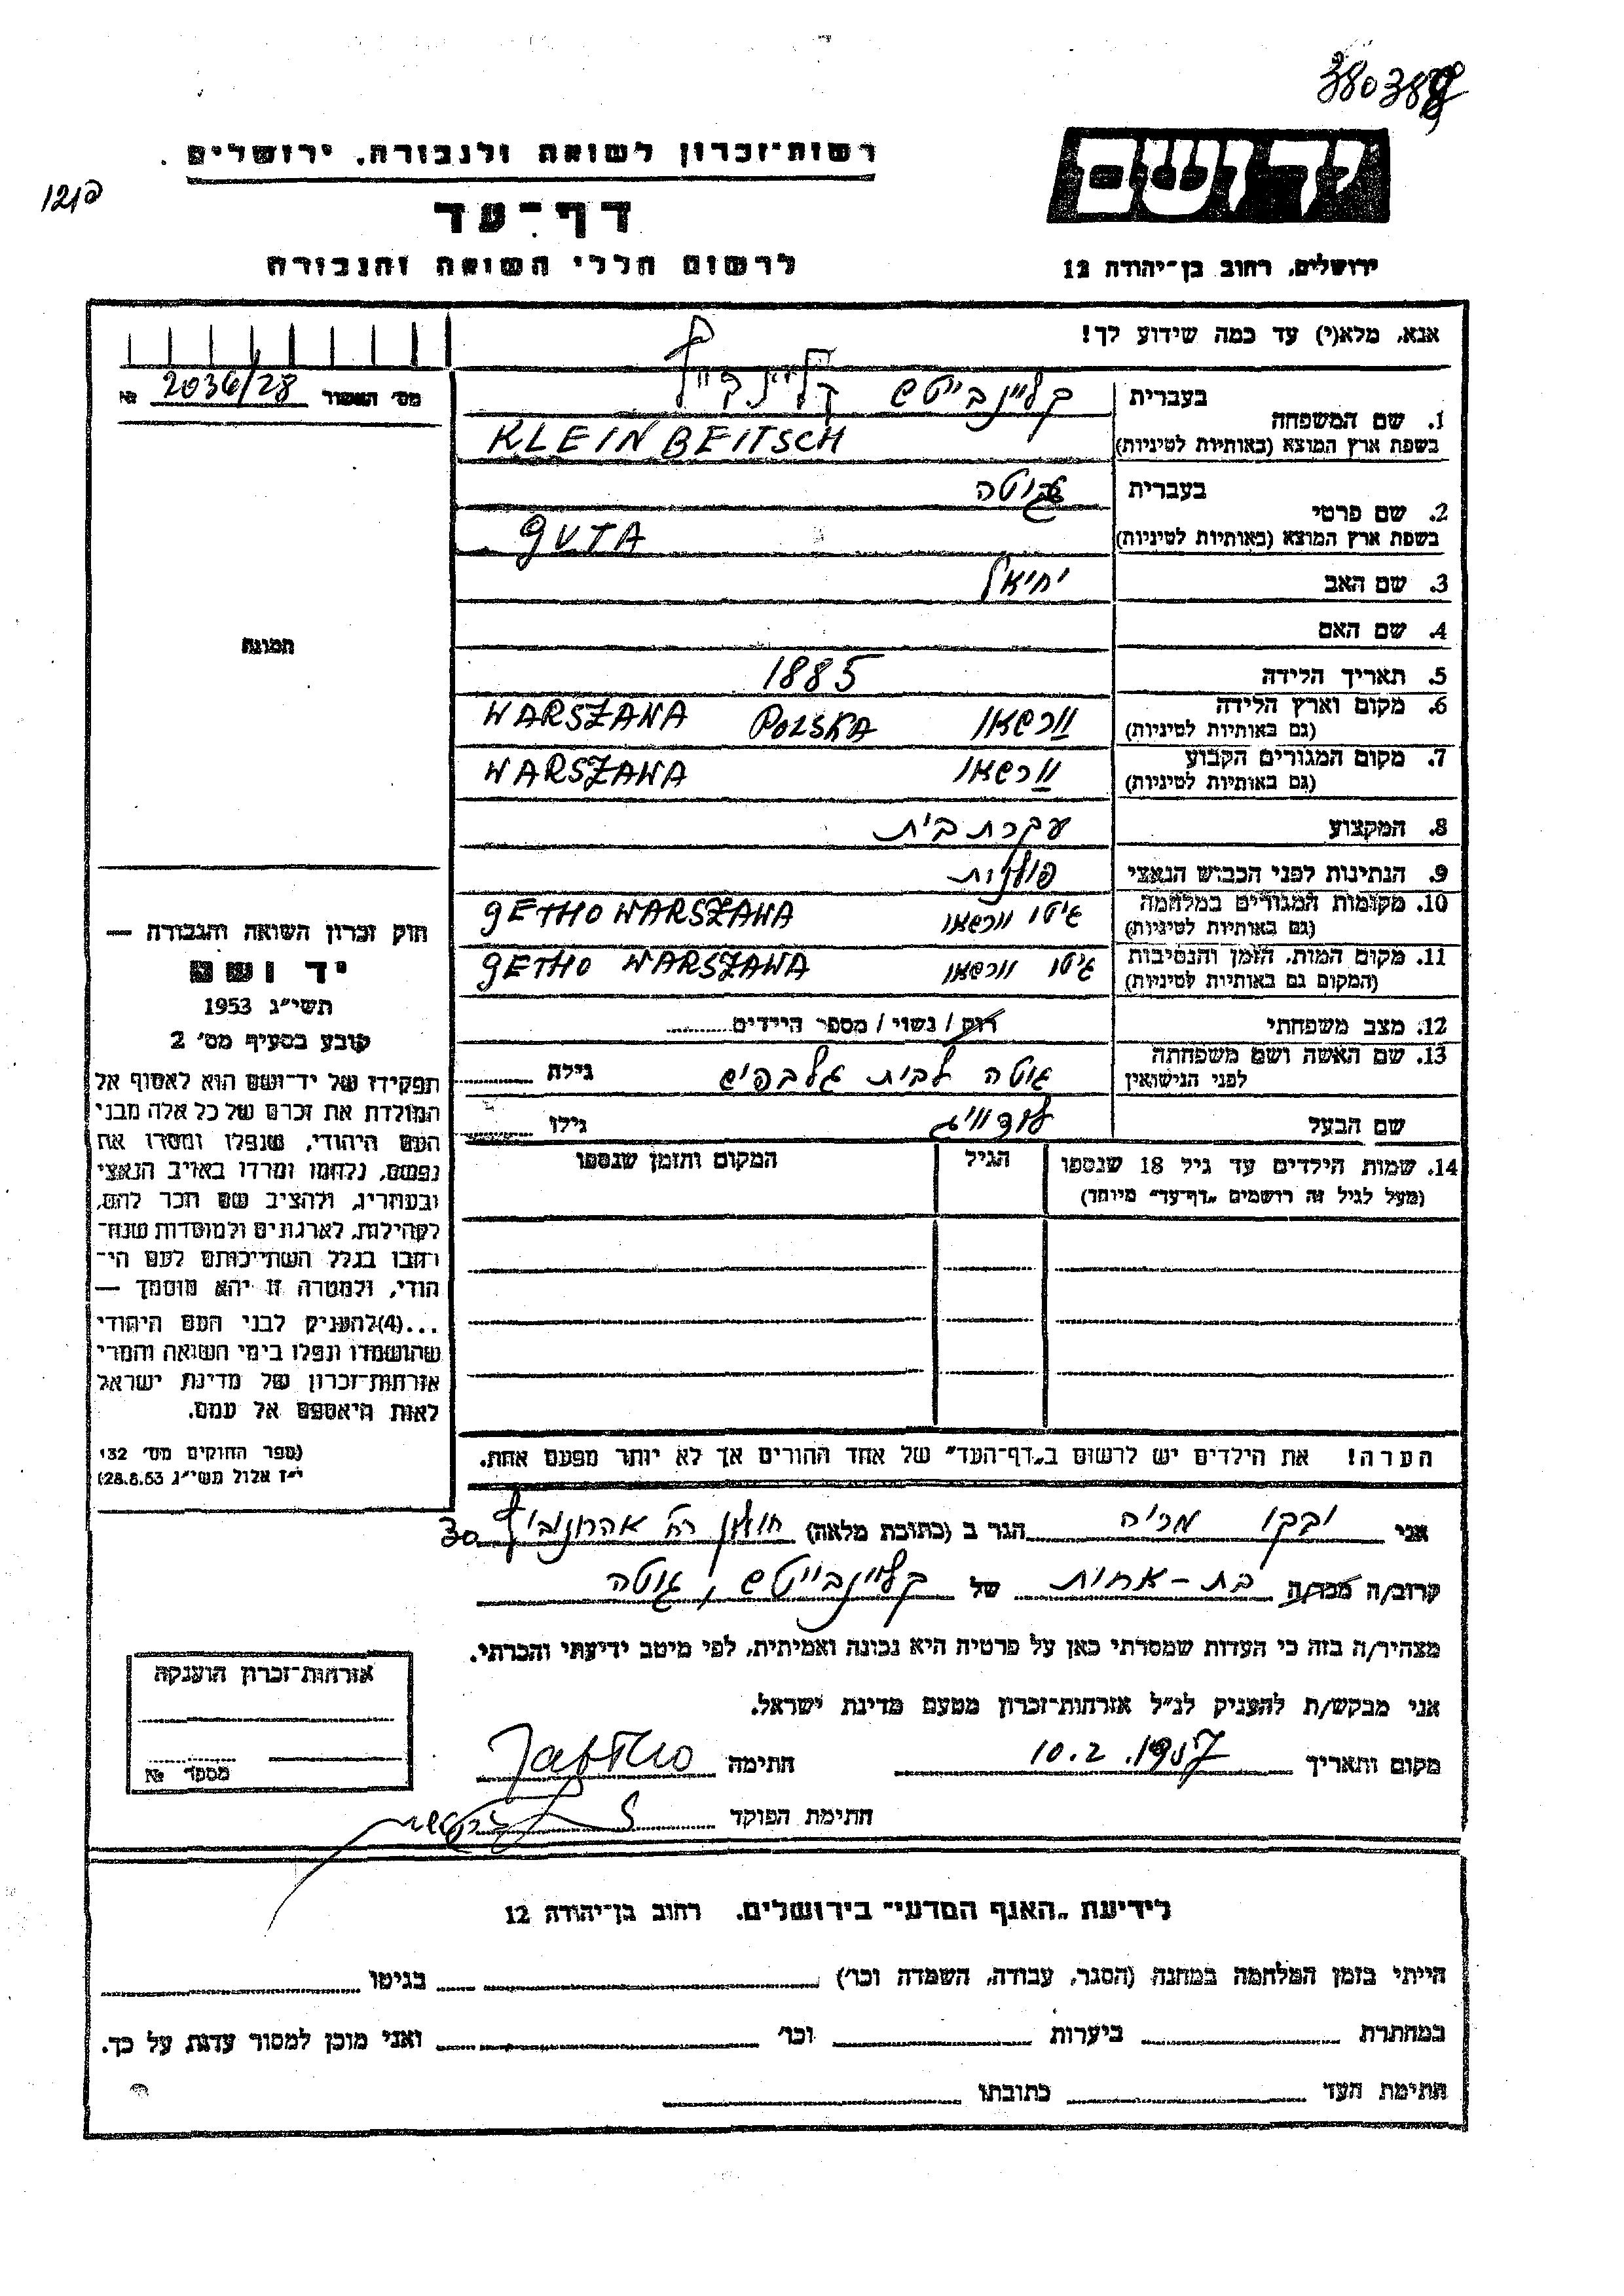 380388
רשות-זכרון לשואה ולגבורה, ירושלים.
דף-עד
לרשום חללי השואה והגבורה
יד ושם
ירושלים, רחוב בן-יהודה 12
אנא, מלא(י) עד כמה שידוע לך!
מס' האשור 2036/28 №
1. שם המשפחה
בעברית קליינבייטש
בשפת ארץ המוצא (באותיות לטיניות) KLEINBEITSCH
2. שם פרטי
בעברית גוטה
בשפת ארץ המוצא (באותיות לטיניות) GUTA
3. שם האב יחיאל
4. שם האם
5. תאריך הלידה 1885
6. מקום וארץ הלידה ורשאו POLSKA WARSZAWA
(גם באותיות לטיניות)
7. מקום המגורים הקבוע ורשאו WARSZAWA
(גם באותיות לטיניות)
8. המקצוע עקרת בית
9. הנתינות לפני הכבוש הנאצי פולנית
10. מקומות המגורים במלחמה גיטו וורשאו GETHO WARSZAWA
(גם באותיות לטיניות)
11. מקום המות, הזמן והנסיבות גיטו וורשאו GETHO WARSZAWA
(המקום גם באותיות לטיניות)
12. מצב משפחתי רוק / נשוי / מספר הילדים
13. שם האשה ושם משפחתה גוטה לבית גלבפיש גילה
לפני הנישואין
שם הבעל לודוויג גילו
14. שמות הילדים עד גיל 18 שנספו הגיל המקום והזמן שנספו
(מעל לגיל זה רושמים „דף-עד" מיוחד)
הערה! את הילדים יש לרשום ב„דף-העד" של אחד ההורים אך לא יותר מפעם אחת.
תמונה
חוק זכרון השואה והגבורה —
יד ושם
תשי"ג 1953
קובע בסעיף מס' 2
תפקידו של יד-ושם הוא לאסוף אל
המולדת את זכרם של כל אלה מבני
העם היהודי, שנפלו ומסרו את
נפשם, נלחמו ומרדו באויב הנאצי
ובעוזריו, ולהציב שם וזכר להם,
לקהילות, לארגונים ולמוסדות שנח-
רבו בגלל השתייכותם לעם הי-
הודי, ולמטרה זו יהא מוסמך —
...(4)להעניק לבני העם היהודי
שהושמדו ונפלו בימי השואה והמרי
אזרחות-זכרון של מדינת ישראל
לאות היאספם אל עמם.
(ספר החוקים מס' 132
י"ז אלול תשי"ג 28.8.53)
אני מריה הגר ב (כתובת מלאה) חולון רח' אהרונוביץ 30
קרוב/ה מכר/ה בת-אחות של קליינבייטש, גוטה
מצהיר/ה בזה כי העדות שמסרתי כאן על פרטיה היא נכונה ואמיתית, לפי מיטב ידיעתי והכרתי.
אני מבקש/ת להעניק לנ"ל אזרחות-זכרון מטעם מדינת ישראל.
מקום ותאריך 10.2.1957 חתימה
חתימת הפוקד
אזרחות-זכרון הוענקה
מספר №
לידיעת „האגף המדעי" בירושלים. רחוב בן-יהודה 12
הייתי בזמן המלחמה במחנה (הסגר, עבודה, השמדה וכו') בגיטו
במחתרת ביערות וכו' ואני מוכן למסור עדות על כך.
חתימת העד כתובתו